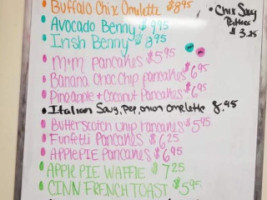 Buffalo Chix Omelette $8.95
Avocado Benny $9.95
Irish Benny $8.95
m+m pancakes $5.95
Banana Choc Chip pancakes $6.95
Pineapple + Coconut Pancakes $6.95
Italian Sausy, Pep, onion omelette 8.95
Butterscotch Chip Pancakes $5.95
Funfetti Pancakes $6.25
APPLE PIE Pancakes $6.95
APPLE PIE WAFFLE $7.25
CINN FRENCH TOAST $5.95
$3.25